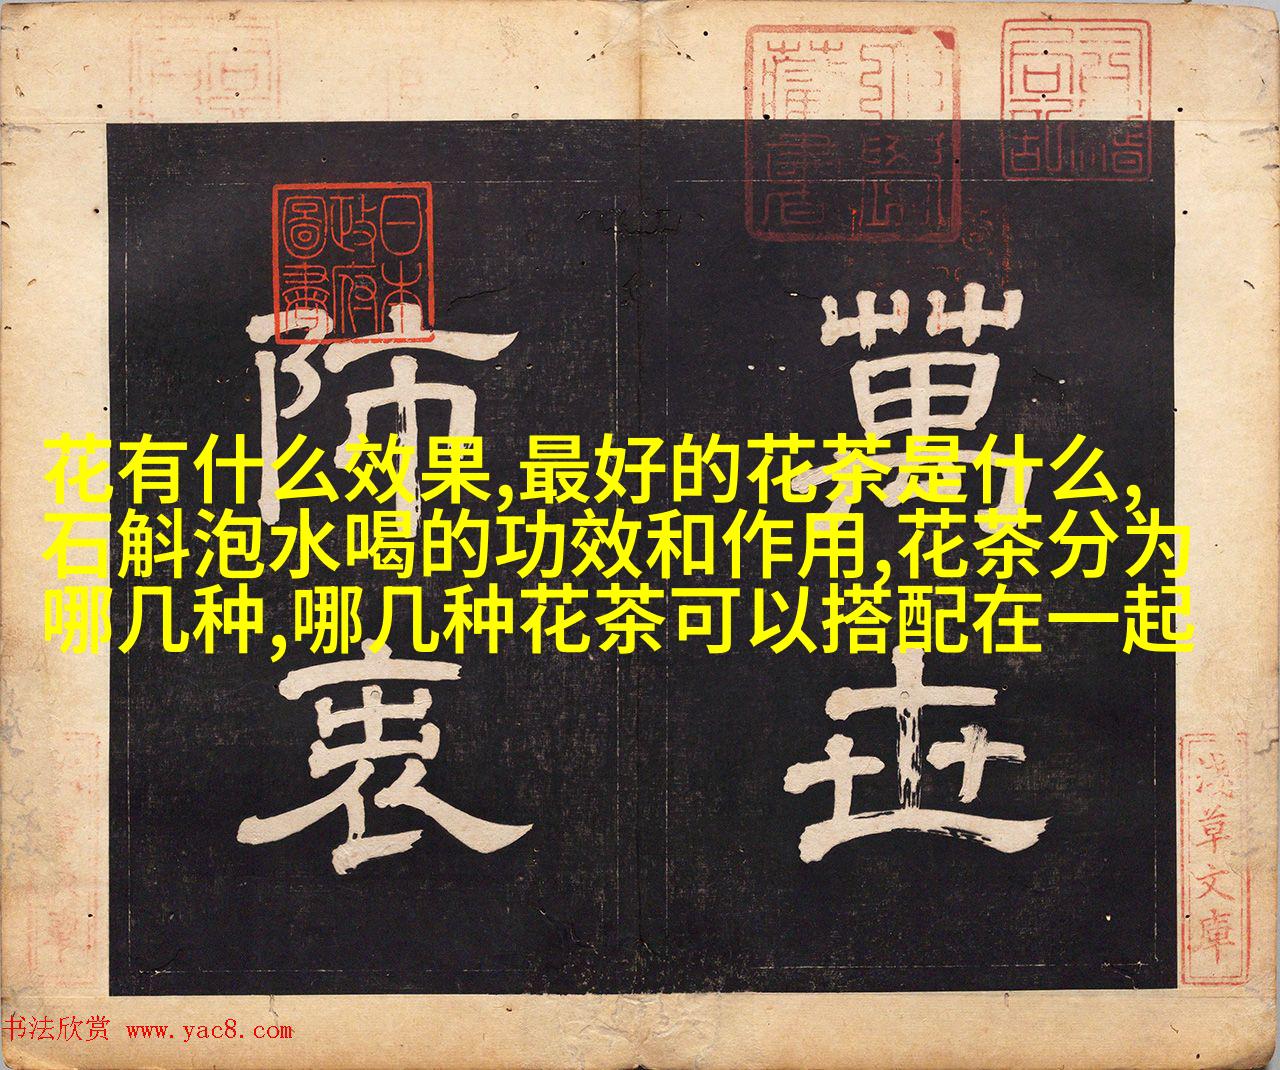 花有什么效果,最好的花茶是什么,
石斛泡水喝的功效和作用,花茶分为
哪几种,哪几种花茶可以搭配在一起
萬世
師衷
日本
政府
圖書
淺草文庫
书法欣赏 www.yac8.com